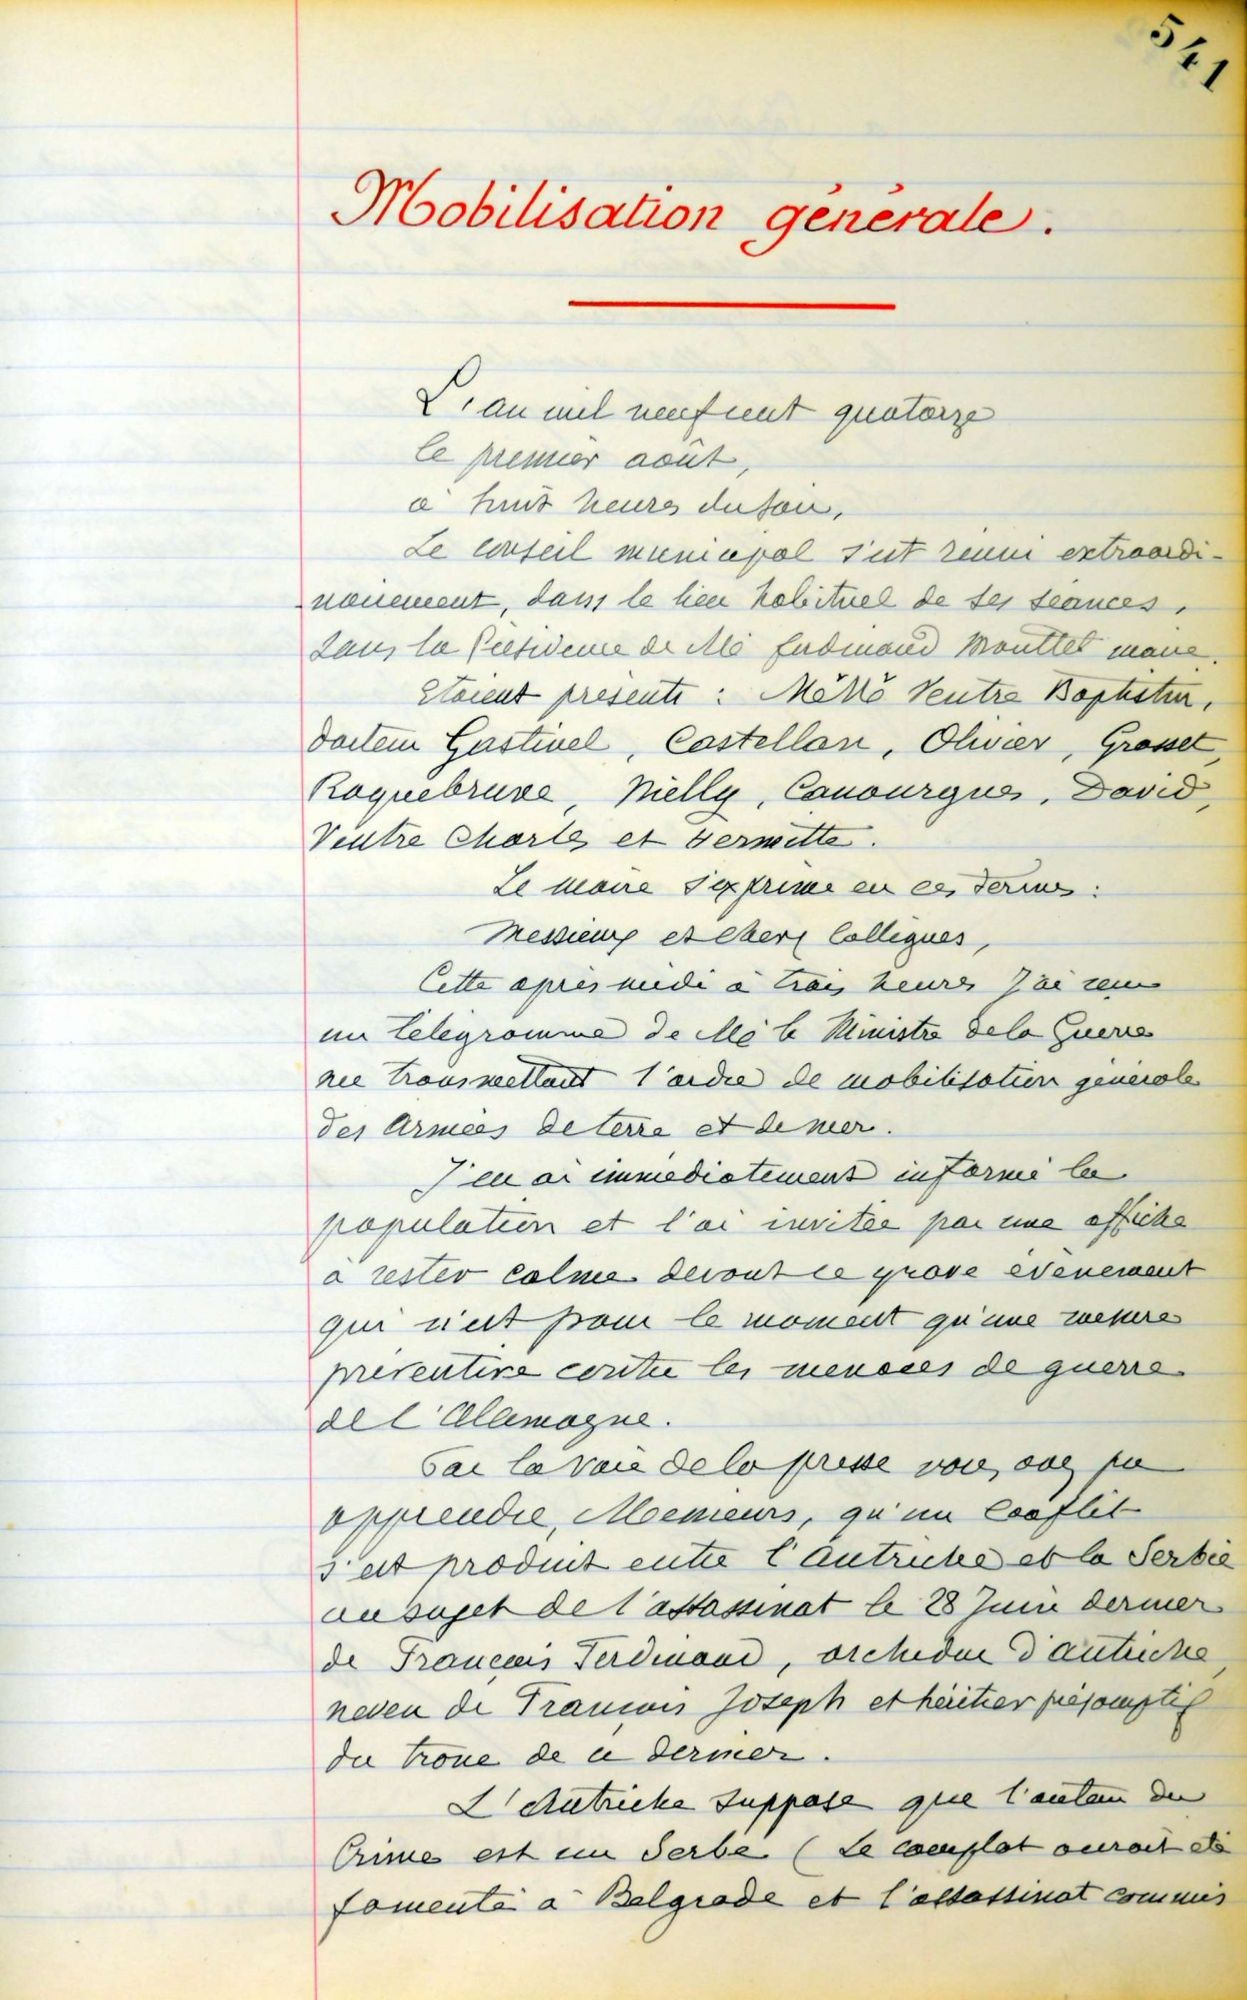 541
Mobilisation générale.
L'an mil neuf cent quatorze
le premier août,
à huit heures du soir,
Le conseil municipal s'est réuni extraordi-
nairement, dans le lieu habituel de ses séances,
sous la Présidence de Mr Ferdinand Mouttet maire.
Etaient présents : MrMrs Ventre Baptistin,
docteur Gastinel, Castellan, Olivier, Grasset,
Roquebrune, Nielly, Canourgues, David,
Ventre Charles et Hermitte.
Le maire s'exprime en ces termes :
Messieurs et chers Collègues,
Cette après midi à trois heures j'ai reçu
un télégramme de Mr le Ministre de la Guerre
me transmettant l'ordre de mobilisation générale
des Armées de terre et de mer.
J'en ai immédiatement informé la
population et l'ai invitée par une affiche
à rester calme devant ce grave évènement
qui n'est pour le moment qu'une mesure
préventive contre les menaces de guerre
de l'Allemagne.
Par la voie de la presse vous avez pu
apprendre, Messieurs, qu'un Conflit
s'est produit entre l'Autriche et la Serbie
au sujet de l'assassinat le 28 Juin dernier
de François Ferdinand, archiduc d'Autriche,
neveu de François Joseph et héritier présomptif
du trône de ce dernier.
L'Autriche suppose que l'auteur du
Crime est un Serbe (Le complot aurait été
fomenté à Belgrade et l'assassinat commis